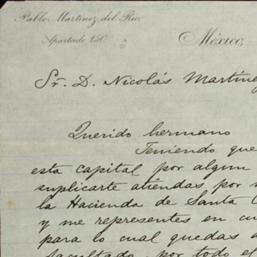 Pablo Martinez del Rio.
Apartado 250.
México,
Sr. D. Nicolás Martine
Querido hermano
Teniendo que
esta capital por algun
suplicarte atiendas por m
la Hacienda de Santa C
y me representes en cu
para lo cual quedas a
facultado, por todo el